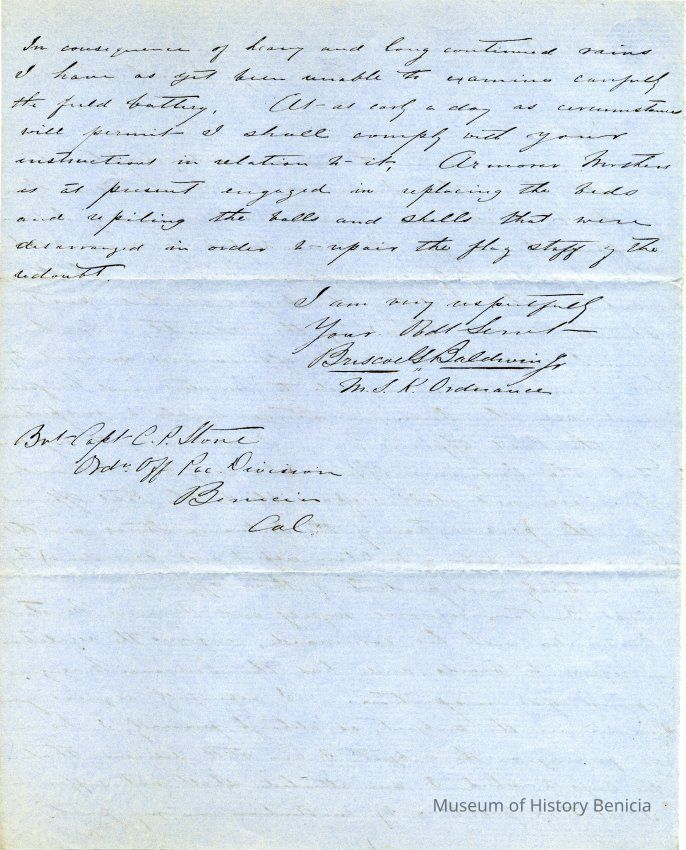 In consequence of heavy and long continued rains
I have as yet been unable to examine carefully
the field battery. At as early a day as circumstances
will permit I shall comply with your
instructions in relation to it. Armorer
is at present engaged in replacing the beds
and repiling the balls and shells that were
disarranged in order to repair the flag staff of the
redoubt.
I am very respectfully
Your Obdt Servt
Briscoe G. Baldwin Jr
M. S. K. Ordnance
Bvt Capt C. P. Stone
Ordn Off Pac. Division
Benicia
Cal.
Museum of History Benicia